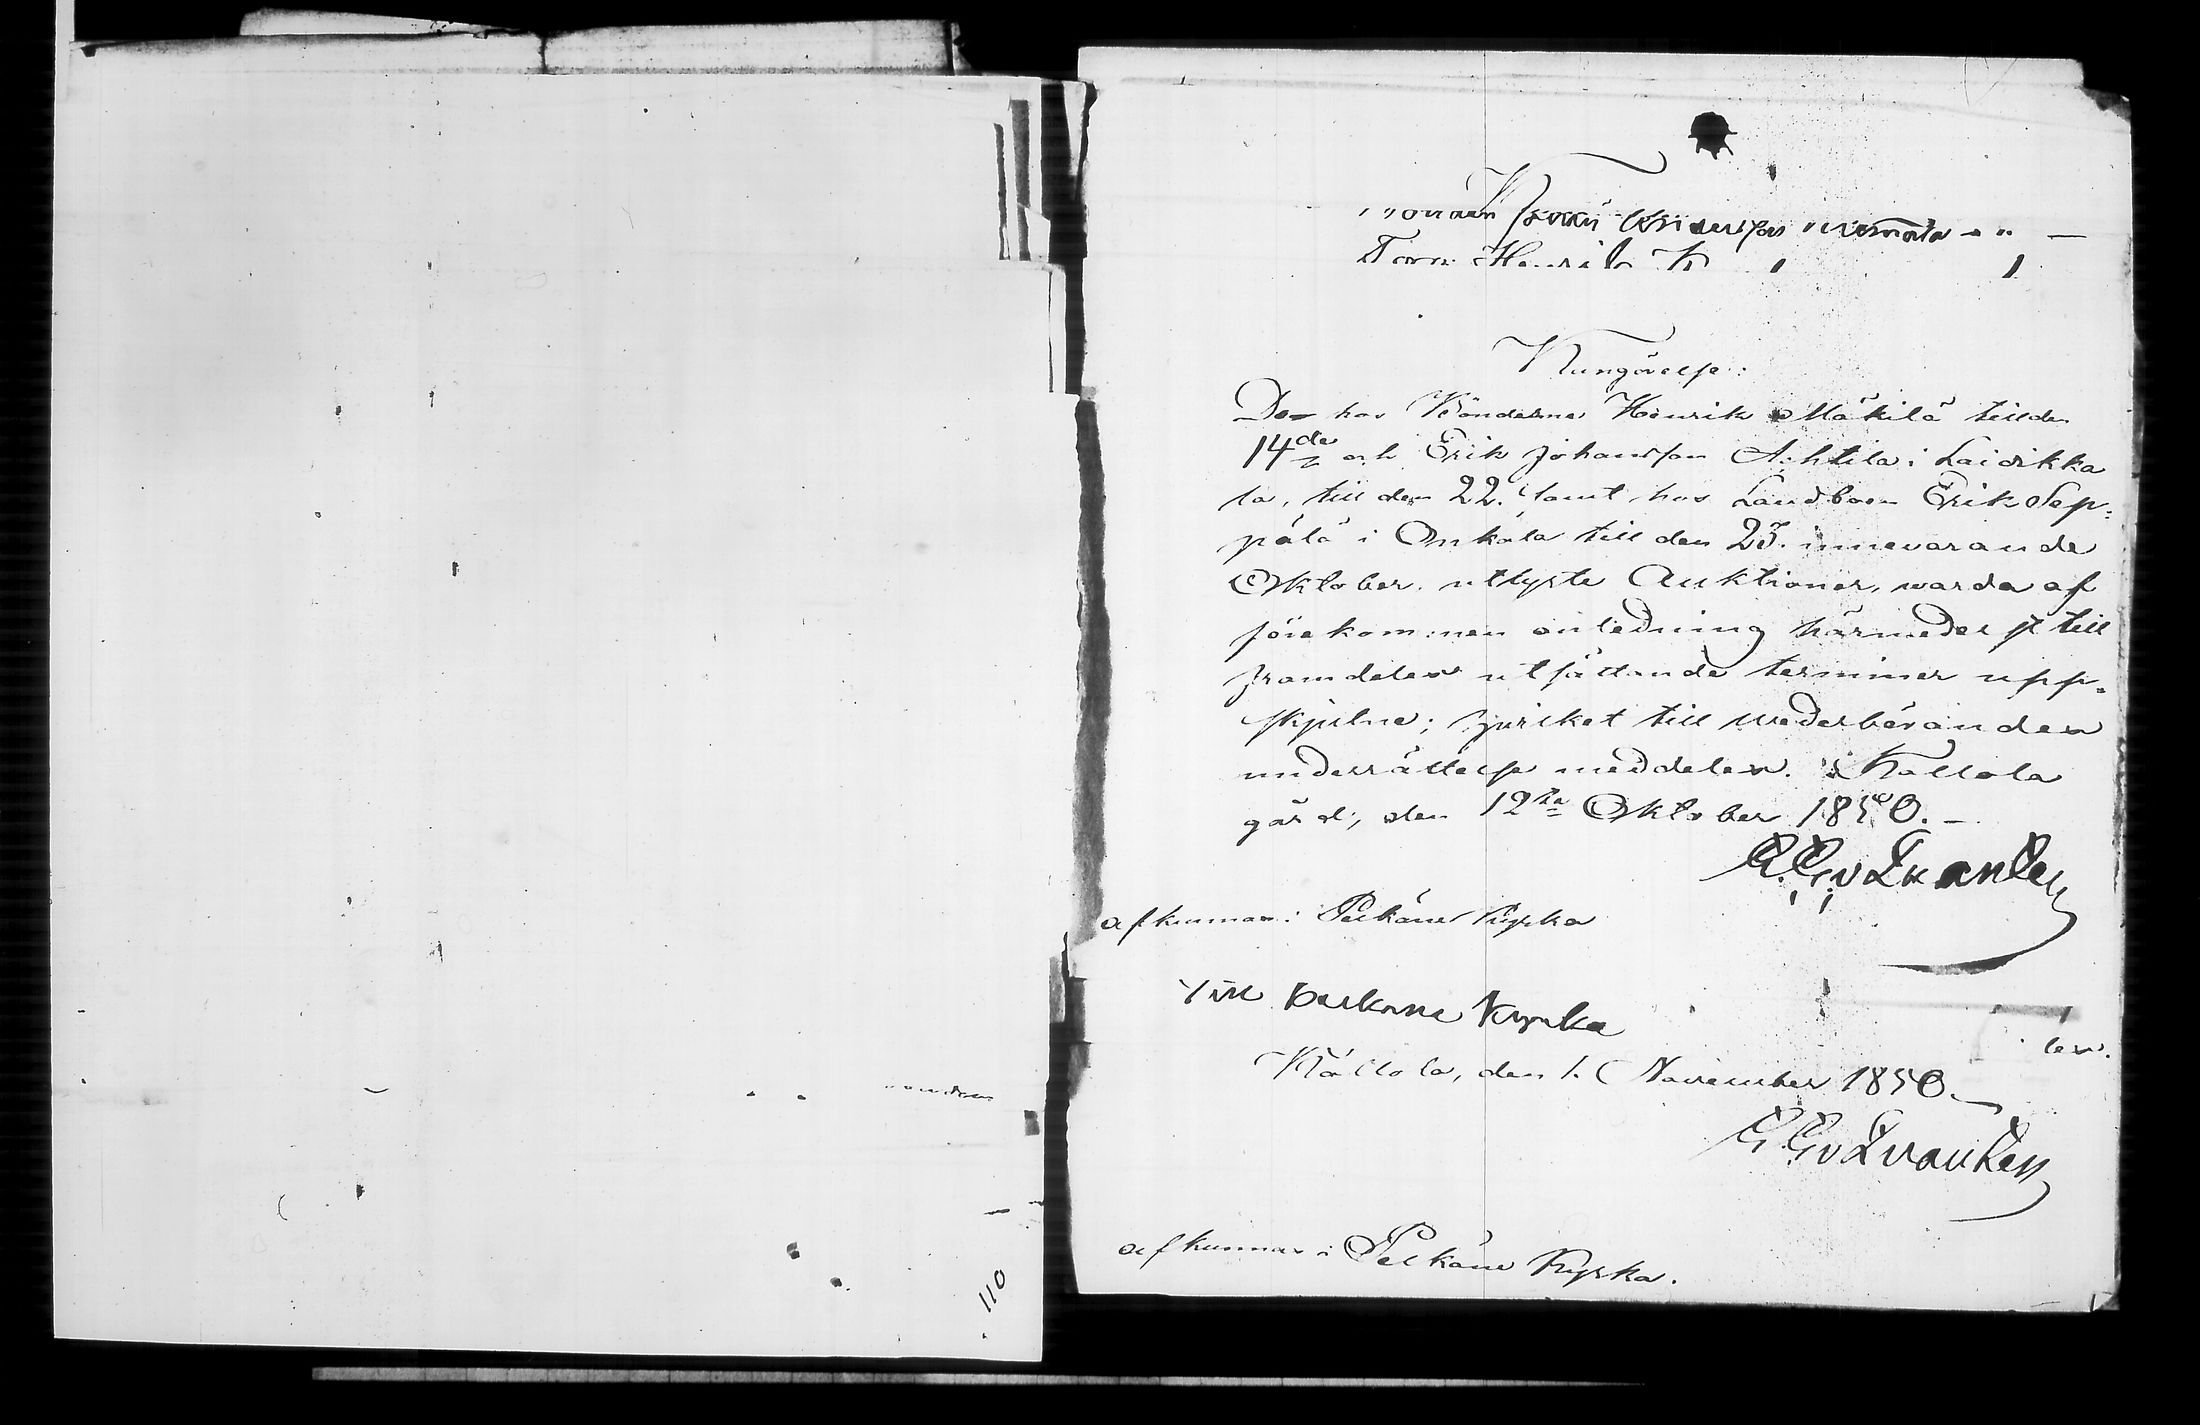 Henrik
Kungörelse:
De hos Bönderne Henrik Mäkilä till den
14de och Erik Johansson Ahtila i Laidikka
la, till den 22. samt hos Landboen Erik Sep-
pälä i Onkala till den 23. innevarande
Oktober utlyste Auktioner, warda af
förekommen anledning härmedelst till
framdeles utsättande terminer upp-
skjutne; hvilket till wederbörandes
underrättelse meddelas. Kallola
gård, den 12te Oktober 1850.-
G. G. v Qvanten
afkunnas i Pelkäne Kyrka
Till Pelkäne Kyrka
les.
Kallola, den 1. November 1850.
G. G. v Qvanten
afkunnas i Pelkäne Kyrka.
110